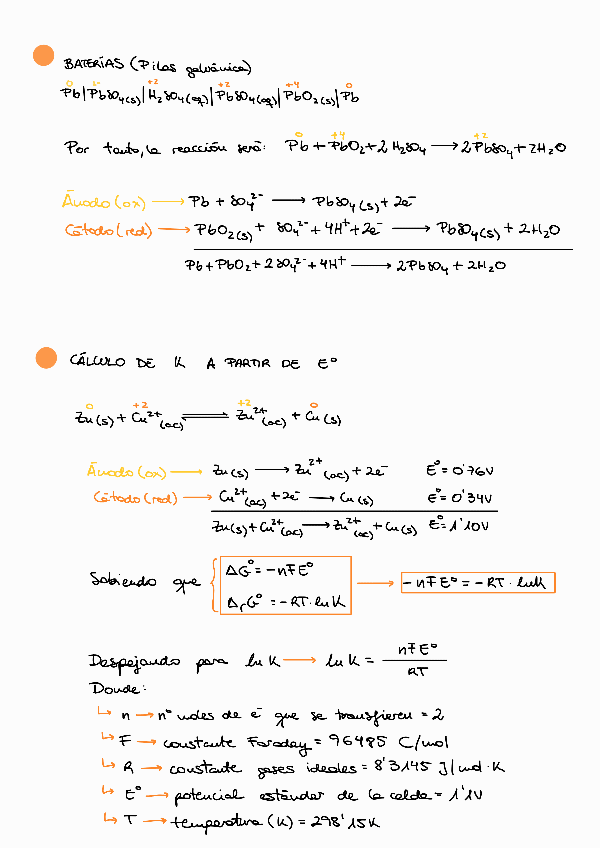 BATERÍAS (Pilas galvánica)
0 +2 +2 +4 0
Pb|PbSO4(s)|H2SO4(aq)|PbSO4(aq)|PbO2(s)|Pb
0 +4 +2
Por tanto, la reacción será: Pb + PbO2 + 2 H2SO4 → 2 PbSO4 + 2H2O
Ánodo (ox) → Pb + SO4²⁻ → PbSO4(s) + 2e⁻
Cátodo (red) → PbO2(s) + SO4²⁻ + 4H⁺ + 2e⁻ → PbSO4(s) + 2H2O
Pb + PbO2 + 2SO4²⁻ + 4H⁺ → 2PbSO4 + 2H2O
CÁLCULO DE K A PARTIR DE Eº
0 +2 +2 0
Zn(s) + Cu²⁺(ac) ⇌ Zn²⁺(ac) + Cu(s)
Ánodo (ox) → Zn(s) → Zn²⁺(ac) + 2e⁻ Eº = 0'76V
Cátodo (red) → Cu²⁺(ac) + 2e⁻ → Cu(s) Eº = 0'34V
Zn(s) + Cu²⁺(ac) → Zn²⁺(ac) + Cu(s) Eº = 1'10V
ΔGº = -nFEº
Sabiendo que → -nFEº = -RT·lnK
ΔrGº = -RT·lnK
Despejando para ln K → ln K = nFEº / RT
Donde:
↳ n → nº moles de e⁻ que se transfieren = 2
↳ F → constante Faraday = 96485 C/mol
↳ R → constante gases ideales = 8'3145 J/mol·K
↳ Eº → potencial estándar de la celda = 1'1V
↳ T → temperatura (K) = 298'15K